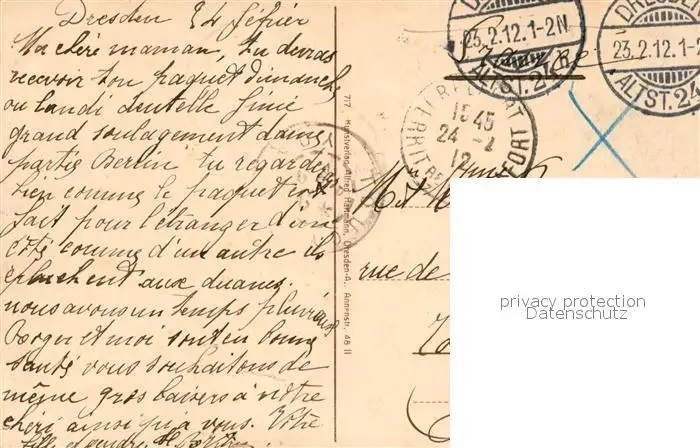 Dresden 24 février
Ma chère maman, tu devras
recevoir ton paquet dimanche
ou lundi dentelle finie
grand soulagement dans
partie Berlin tu regarderas
bien comme le paquet est
fait pour l'étranger d'un
côté comme d'un autre ils
épluchent aux duanes.
nous avons un temps pluvieux
Roger et moi sont en bonne
santé vous souhaitons de
même gros baisers à nôtre
chéri ainsi qu'a vous. Votre
fille et gendre
717 Kunstverlag Alfred Hartmann, Dresden-A., Annenstr. 48 II
DRESDEN
23.2.12.1-2N
ALTST. 24
DRESDEN
23.2.12.1-2
ALTST. 24
BELFORT
15 45
24 - 2
12
rue de
privacy protection
Datenschutz